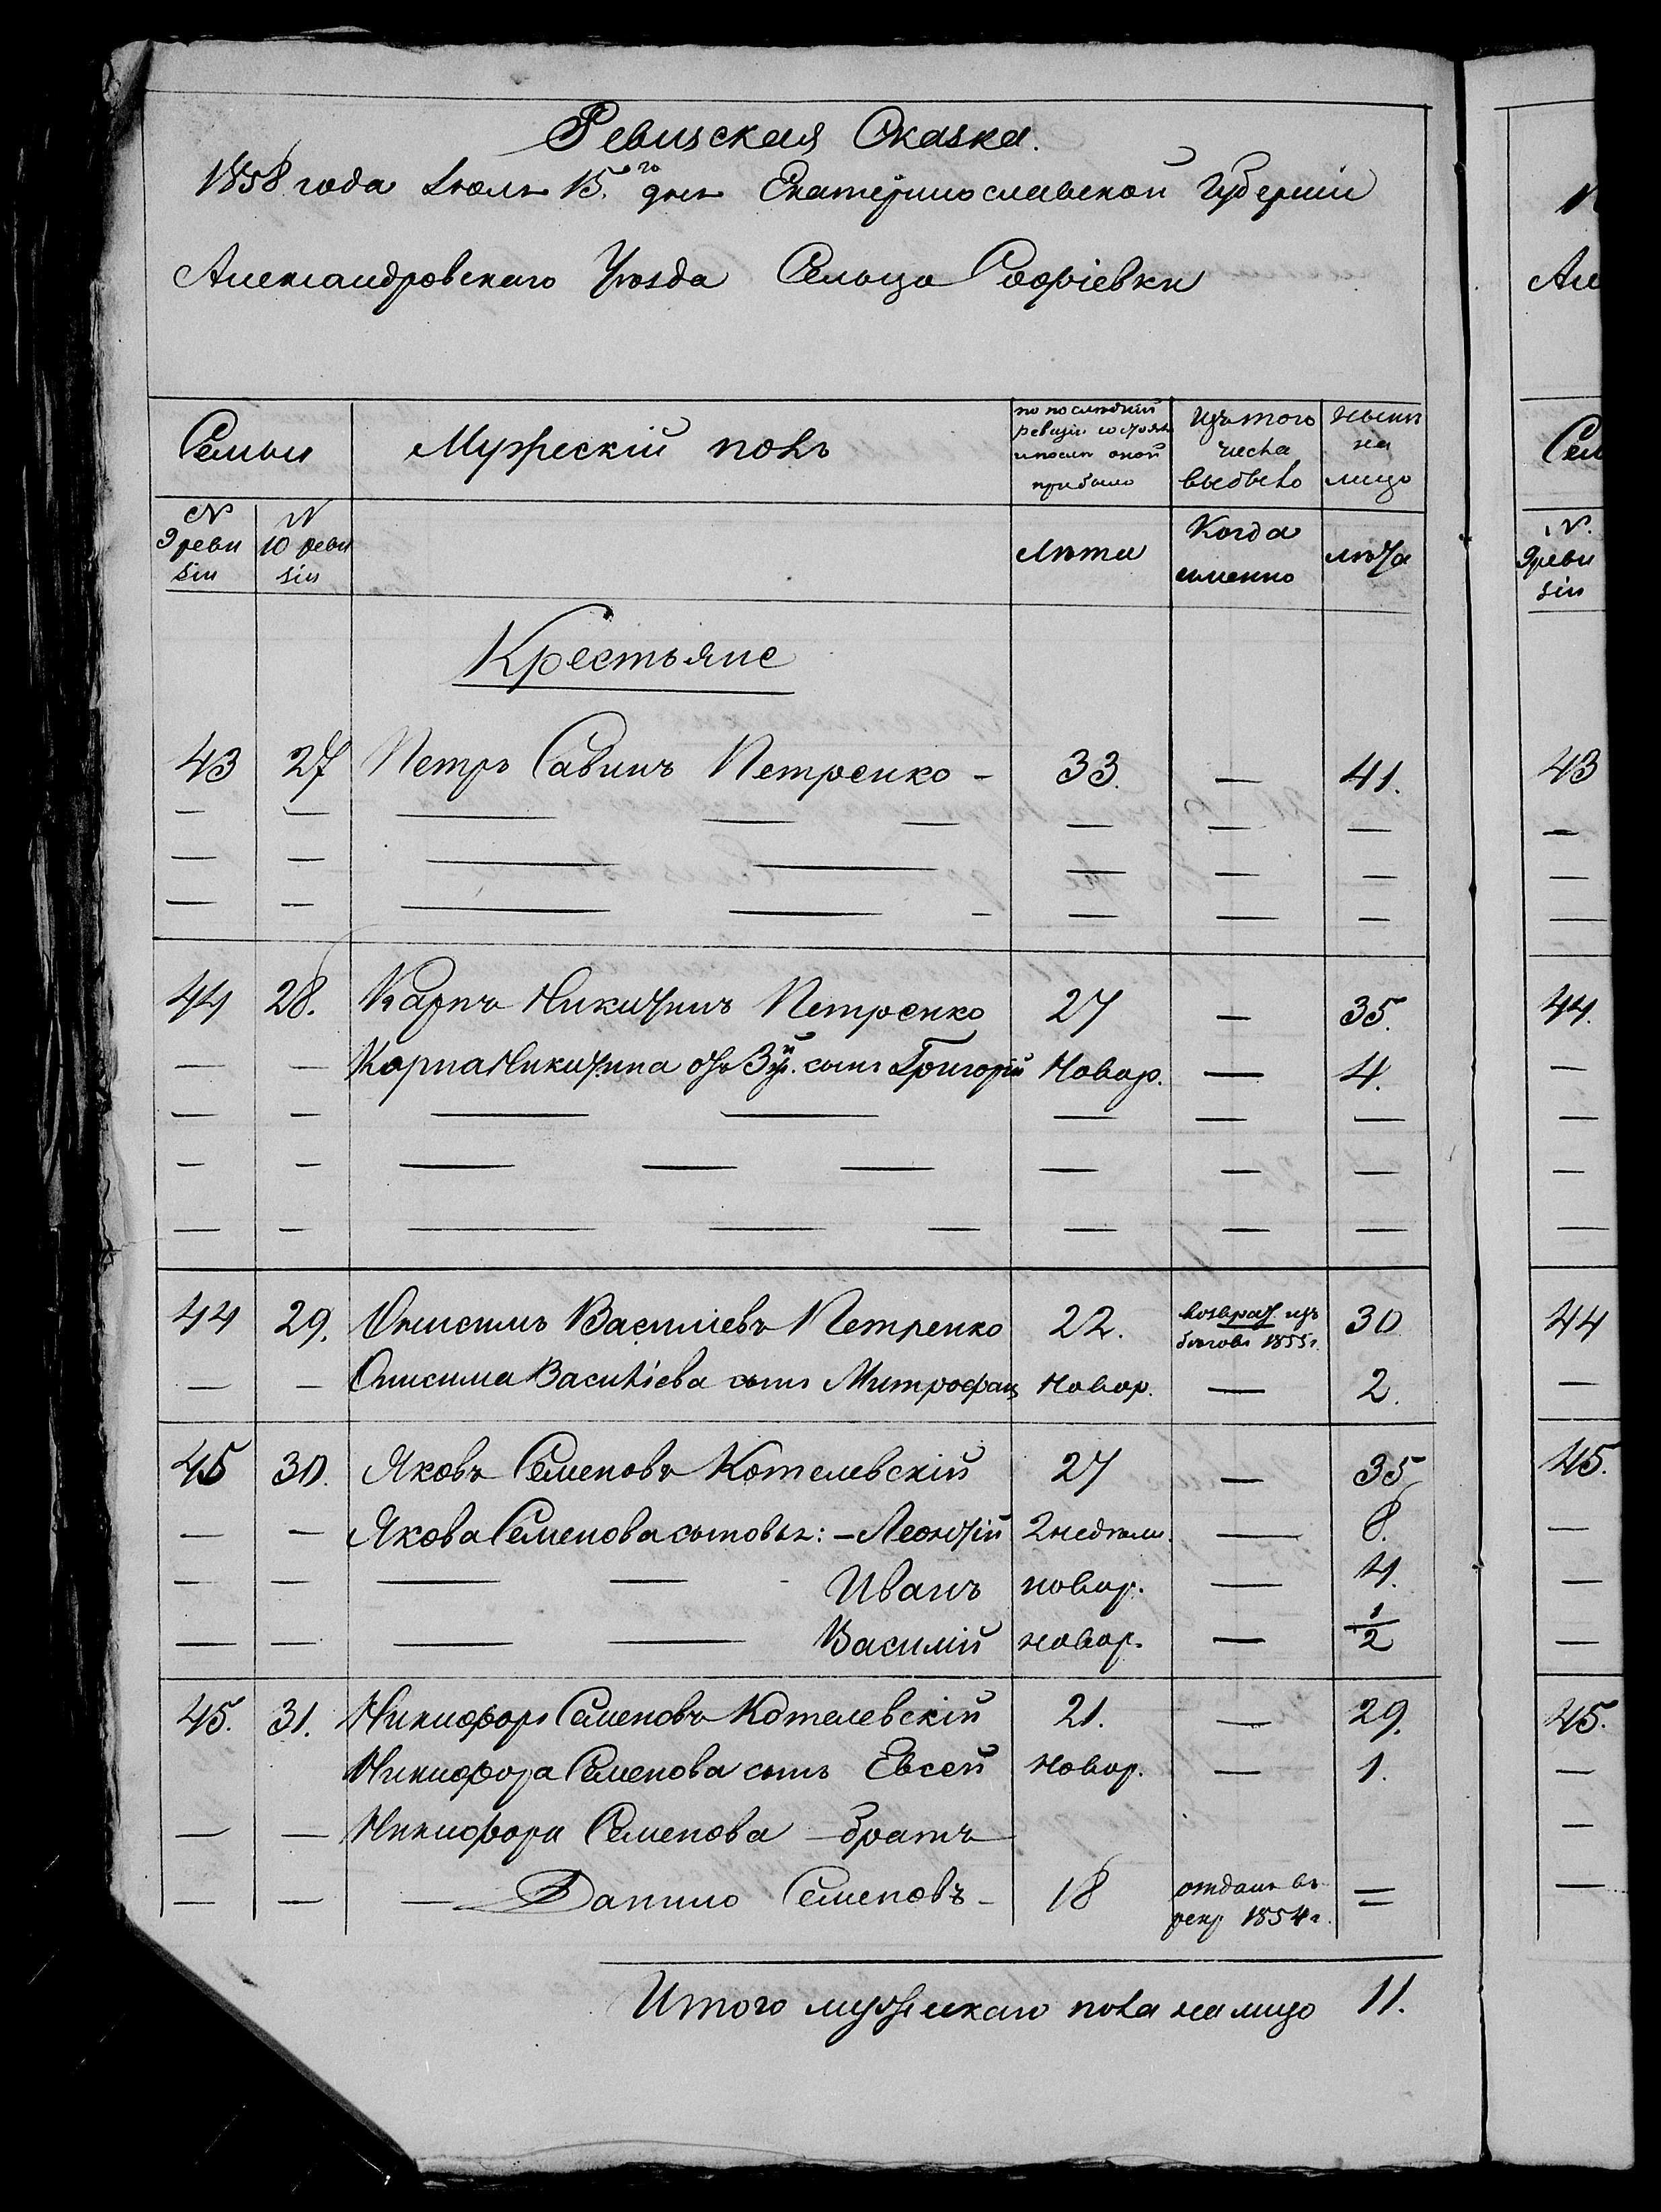 Ревизская Сказка.
1858 года Июля 15.го дня Екатеринославской Губерніи
Александровскаго Уѣзда Сельца Софіевки
Семьи
Мужескій полъ
по послѣдней ревизіи состояло и послѣ оной прибыло
Изъ того числа выбыло
Нынѣ на лицо
N 9 ревизіи
N 10 ревизіи
Лѣта
Когда именно
лѣта
Крестьяне
43 27 Петръ Савинъ Петренко - 33. — 41.
— — — — — — — —
— — — — — — —
— — — — - — — —
44 28. Карпъ Никитинъ Петренко 27 — 35.
— — Карпа Никитина отъ 3й ж. сынъ Григорій Новор. — 4.
— — — — — — —
— — — — — — — —
— — — — — — — —
44 29. Онисимъ Василіевъ Петренко 22. возврат. изъ бѣговъ 1855 г. 30
— — Онисима Василіева сынъ Митрофанъ Новор. — 2.
45 30. Яковъ Семеновъ Котелевскій 27 — 35
— — Якова Семенова сыновья: - Леонтій 2 недѣли. — 8.
— — — — - Иванъ новор. — 4.
— — — — Василій новор. — 1/2
45. 31. Никифоръ Семеновъ Котелевскій 21. — 29.
Никифора Семенова сынъ Евсей Новор. — 1.
— — Никифора Семенова — братъ
— — — Данило Семеновъ - 18 отданъ въ рекр 1854 г. =
Итого мужескаго пола на лицо 11.
N.
Але
Сем
N.
9 реви
зіи
43
—
—
—
44.
—
—
—
—
44
—
45.
—
—
—
45.
—
—
—